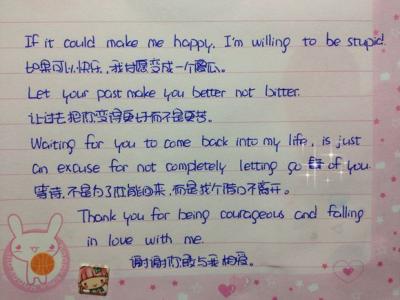 If it could make me happy, I'm willing to be stupid.
如果可以快乐，我甘愿变成一个傻瓜。
Let your past make you better not bitter.
让过去把你变得更好而不是更苦。
Waiting for you to come back into my life, is just
an excuse for not completely letting go of you.
等待，不是为了你能回来，而是找个借口不离开。
Thank you for being courageous and falling
in love with me.
谢谢你敢与我相爱。